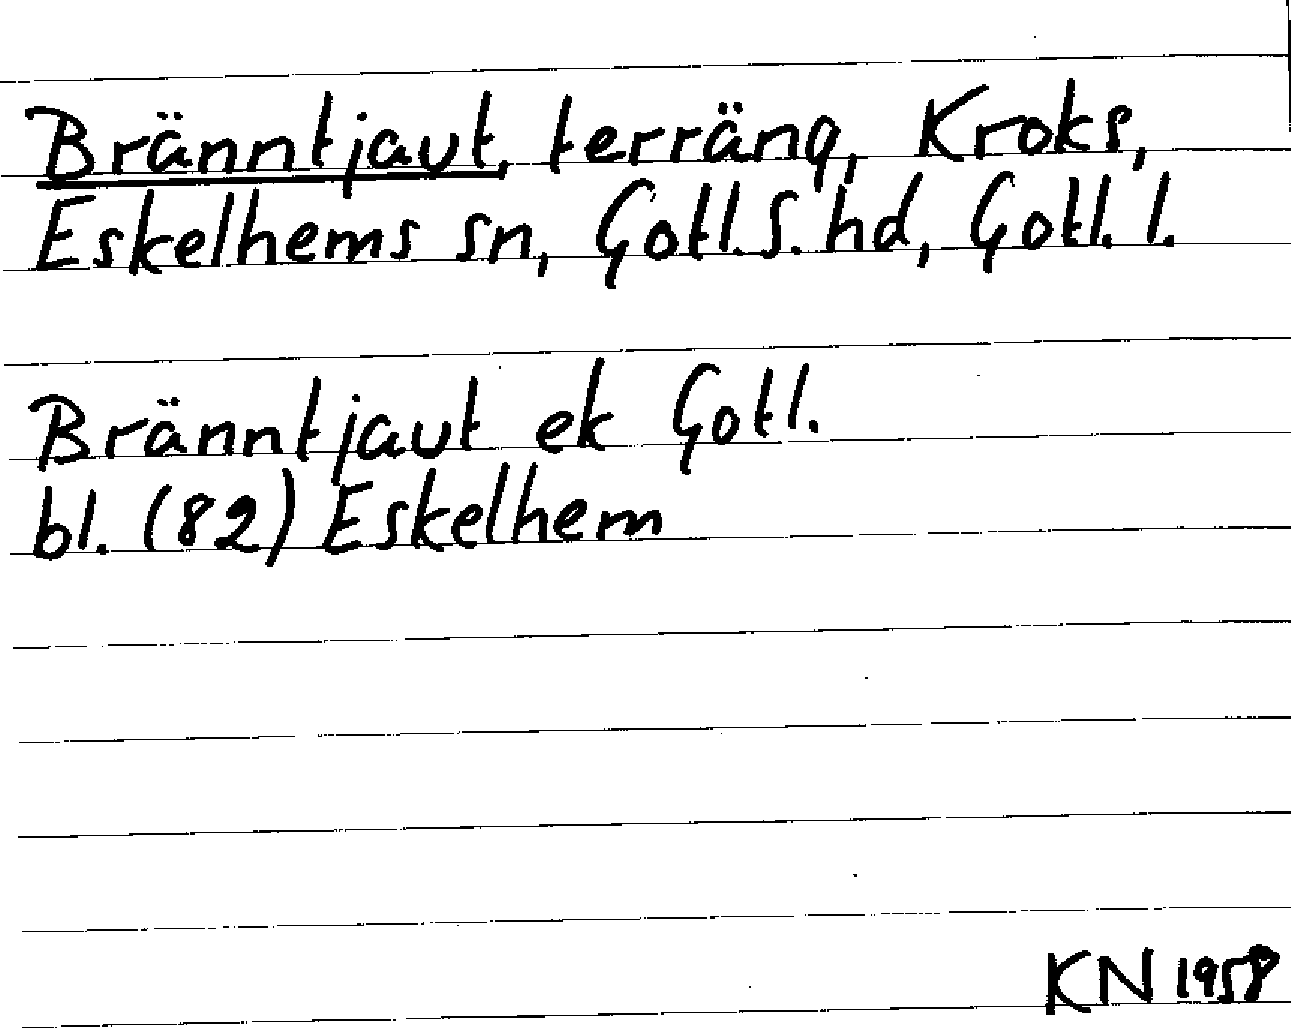 Bränntjaut, terräng, Kroks,
Eskelhems sn, Gotl. S. hd, Gotl. l.
Bränntjaut ek Gotl.
bl. (82) Eskelhem
KN 1958